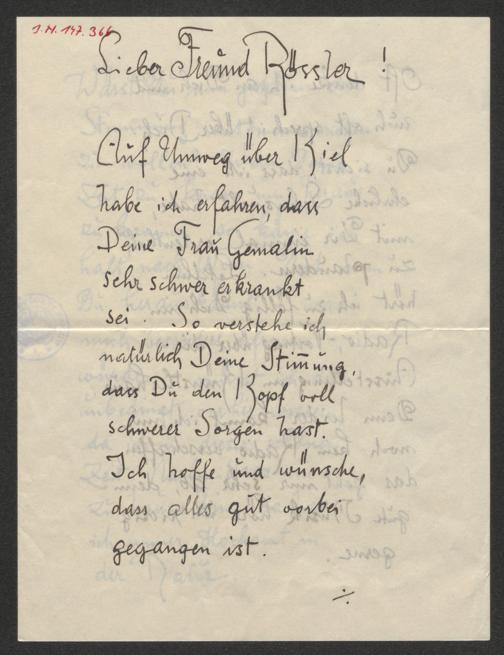 J.N. 147.366
Lieber Freund Rössler !
Auf Umweg über Kiel
habe ich erfahren, dass
Deine Frau Gemalin
sehr schwer erkrankt
sei. So verstehe ich
natürlich Deine Stim̄ung,
dass Du den Kopf voll
schwerer Sorgen hast.
Ich hoffe und wünsche,
dass alles gut vorbei
gegangen ist.
./.